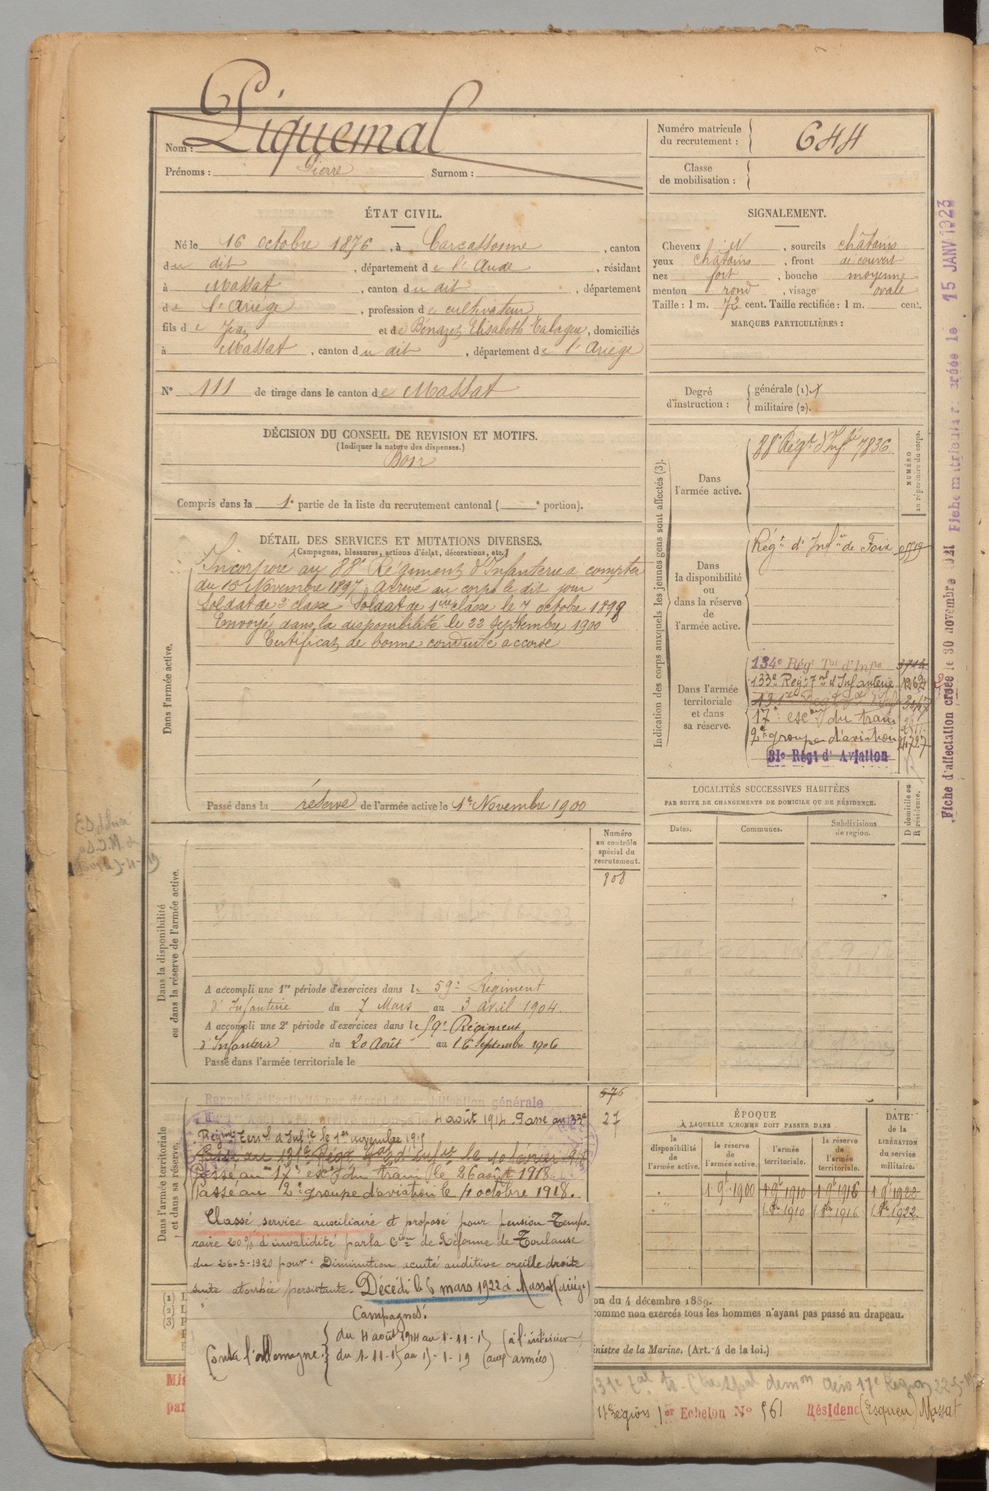 Nom : Piquemal
Prénoms : Pierre Surnom :
Numéro matricule
du recrutement : 644
Classe
de mobilisation :
ÉTAT CIVIL.
Né le 16 octobre 1876, à Carcassonne, canton
du dit, département de l'Aude, résidant
à Massat, canton du dit, département
de l'Ariège, profession de cultivateur
fils de Jean et de Bénazet Elisabeth, domiciliés
à Massat, canton du dit, département de l'Ariège
N° 111 de tirage dans le canton de Massat
SIGNALEMENT.
Cheveux N, sourcils châtains
yeux châtains, front découvert
nez fort, bouche moyenne
menton rond, visage ovale
Taille : 1 m. 72 cent. Taille rectifiée : 1 m. cent.
MARQUES PARTICULIÈRES :
Degré
d'instruction :
générale (1).
militaire (2).
DÉCISION DU CONSEIL DE REVISION ET MOTIFS.
(Indiquer la nature des dispenses.)
Bon
Compris dans la 1e partie de la liste du recrutement cantonal ( e portion).
DÉTAIL DES SERVICES ET MUTATIONS DIVERSES.
(Campagnes, blessures, actions d'éclat, décorations, etc.)
Dans l'armée active.
Incorporé au 88e Régiment d'Infanterie à compter
du 15 Novembre 1897, arrivé au corps le dit jour
Soldat de 2e classe. Soldat de 1re classe le 7 octobre 1898
Envoyé dans la disponibilité le 22 Septembre 1900
Certificat de bonne conduite accordé
Passé dans la réserve de l'armée active le 1er Novembre 1900
Indication des corps auxquels les jeunes gens sont affectés (3).
NUMÉRO
au répertoire du corps.
Dans
l'armée active.
88e Régt d'Infie 7836
Dans
la disponibilité
ou
dans la réserve
de
l'armée active.
Régt d'Infie de Foix
Dans l'armée
territoriale
et dans
sa réserve.
134e Régt Tal d'Infie
133e Régt Tal d'Infanterie
131e
17e escon du train
2e groupe d'aviation
31e Régt d'Aviation
LOCALITÉS SUCCESSIVES HABITÉES
PAR SUITE DE CHANGEMENTS DE DOMICILE OU DE RÉSIDENCE.
Dates.
Communes.
Subdivisions
de région.
D domicile ou
R résidence.
Numéro
au contrôle
spécial du
recrutement.
Dans la disponibilité
ou dans la réserve de l'armée active.
A accompli une 1re période d'exercices dans le 59e Régiment
d'Infanterie du 7 Mars au 3 avril 1904.
A accompli une 2e période d'exercices dans le 59e Régiment
d'Infanterie du 20 Août au 16 Septembre 1906
Passé dans l'armée territoriale le
576
27
Dans l'armée territoriale
et dans sa réserve.
Rappelé à l'activité par décret de mobilisation générale
4 août 1914. Passé au 133e
Régiment Terral d'Infie le 1er novembre 1915
Passé au 131e Régt Tal d'Infie le 10 février
Passé au 17e escon du train le 26 août 1918.
Passé au 2e groupe d'aviation le 4 octobre 1918.
Classé service auxiliaire et proposé pour pension Tempo-
raire 20% d'invalidité par la Cion de Réforme de Toulouse
du 26-3-1920 pour : Diminution acuité auditive oreille droite
suite otorrhée persistante. Décédé le 6 mars 1922 à Massat (Ariège)
Campagnes.
Contre l'Allemagne :
du 4 août 1914 au 1-11-15 (à l'intérieur)
du 1-11-15 au 15-1-19 (aux armées)
ÉPOQUE
À LAQUELLE L'HOMME DOIT PASSER DANS
DATE
de la
LIBÉRATION
du service
militaire.
la
disponibilité
de
l'armée active.
la réserve
de
l'armée active.
l'armée
territoriale.
la réserve
de
l'armée
territoriale.
1 9bre 1900 1 9bre 1910 1 9bre 1916 1 9bre 1922
1 8bre 1910 1 8bre 1916 1 8bre 1922
on du 4 décembre 1889.
comme non exercés tous les hommes n'ayant pas passé au drapeau.
inistre de la Marine. (Art. 4 de la loi.)
1er Echelon N° 561 Résidence (Esquen) Massat
Fiche d'affectation créée le 30 novembre 1921 Fiche matricule créée le 15 JANV 1923